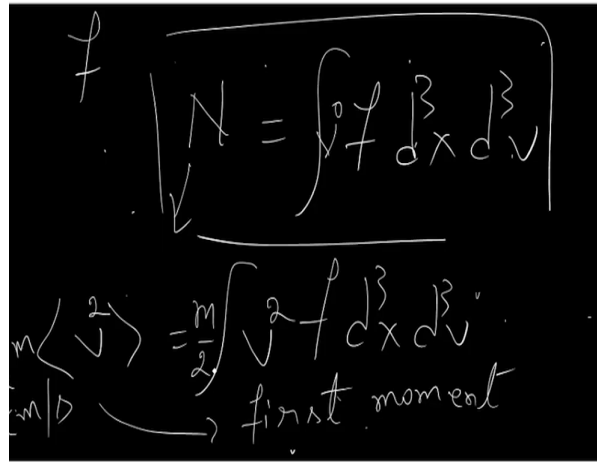 f
N = ∫ v⁰ f d³x d³v
m⟨v²⟩ = m/2 ∫ v² f d³x d³v
first moment